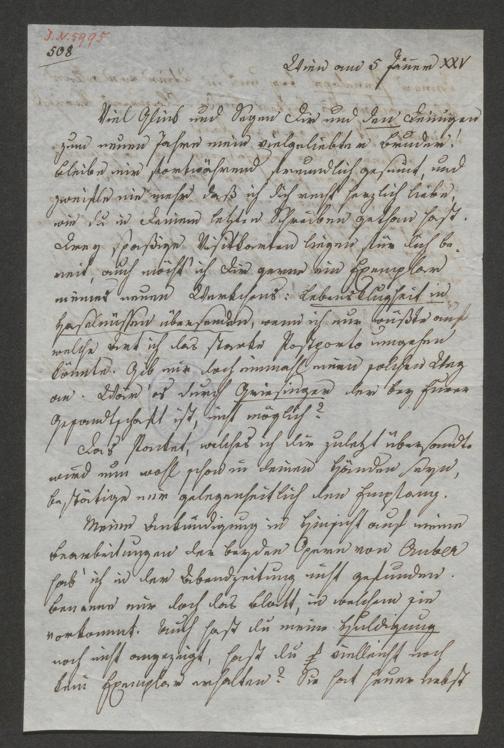 I.N. 5995
508
Wien am 5 Jänner XXV
Viel Glück und Segen dir und den Deinigen
zum neuen Jahre mein vielgeliebter Bruder!
bleibe mir fortwährend freundlich gesinnt, und
zweifle nie mehr daß ich dich recht herzlich liebe,
wie du in deinem letzten Schreiben gethan hast.
Drey spaßige Visitkarten liegen für dich be-
reit, auch möcht' ich dir gerne ein Exemplar
meines neuen Werkchens: Lebensklugheit in
Haselnüssen übersenden, wenn ich nur wüßte auf
welche Art ich das starke Postporto umgehen
könnte. Gib mir doch einmahl einen solchen Weg
an. Wär' es durch Griesinger der bey Eurer
Gesandtschaft ist, nicht möglich?
Das Packet, welches ich dir zuletzt übersandte
wird nun wohl schon in deinen Händen seyn,
bestätige nur gelegenheitlich den Empfang.
Meine Ankündigung in Hinsicht auf meine
Bearbeitungen der beyden Opern von Auber
hab' ich in der Abendzeitung nicht gefunden.
Benenne mir doch das Blatt, in welchem sie
vorkommt. Auch hast du meine Huldigung
noch nicht angezeigt, hast du vielleicht noch
kein Exemplar erhalten? Sie hat heuer nebst